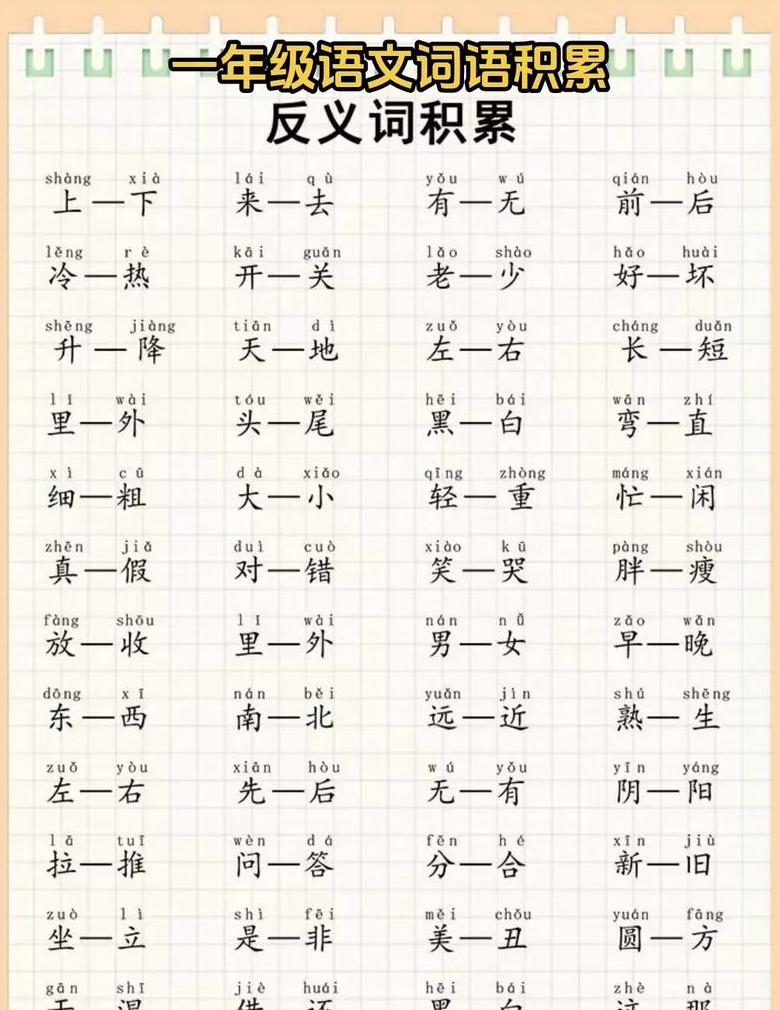 一年级语文词语积累
反义词积累
shàng xià lái qù yǒu wú qián hòu
上—下 来—去 有—无 前—后
lěng rè kāi guān lǎo shào hǎo huài
冷—热 开—关 老—少 好—坏
shēng jiàng tiān dì zuǒ yòu cháng duǎn
升—降 天—地 左—右 长—短
lǐ wài tóu wěi hēi bái wān zhí
里—外 头—尾 黑—白 弯—直
xì cū dà xiǎo qīng zhòng máng xián
细—粗 大—小 轻—重 忙—闲
zhēn jiǎ duì cuò xiào kū pàng shòu
真—假 对—错 笑—哭 胖—瘦
fàng shōu lǐ wài nán nǚ zǎo wǎn
放—收 里—外 男—女 早—晚
dōng xī nán běi yuǎn jìn shú shēng
东—西 南—北 远—近 熟—生
zuǒ yòu xiān hòu wú yǒu yīn yáng
左—右 先—后 无—有 阴—阳
lā tuī wèn dá fēn hé xīn jiù
拉—推 问—答 分—合 新—旧
zuò lì shì fēi měi chǒu yuán fāng
坐—立 是—非 美—丑 圆—方
gān shī jiè huái hēi bái zhè nà
干—湿 借—还 黑—白 这—那